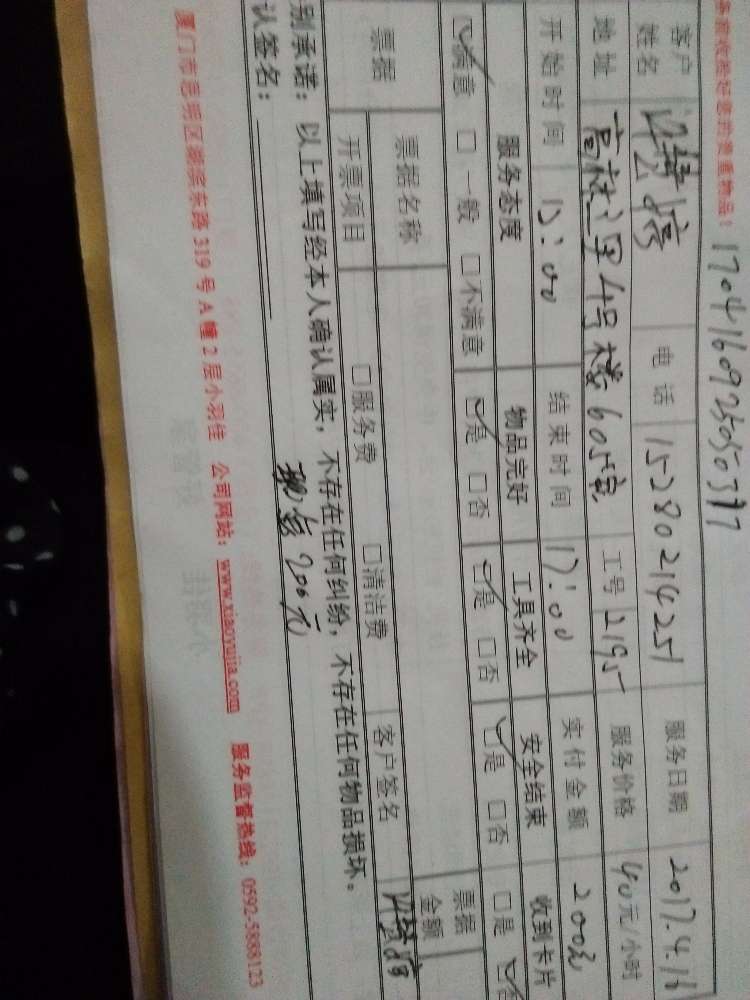 务前收拾好您的贵重物品！ 1704160925050397
客户姓名 电话 15280214251 服务日期 2017.4.16
地址 高林二里4号楼605室 工号 2195 服务价格 40元/小时
开始时间 12:00 结束时间 17:00 实付金额 200元
服务态度 物品完好 工具齐全 安全结束 收到卡片
☑满意 □一般 □不满意 ☑是 □否 ☑是 □否 ☑是 □否 □是 ☑
票据 票据名称 票据金额
开票项目 □服务费 □清洁费 客户签名
别承诺：以上填写经本人确认属实，不存在任何纠纷，不存在任何物品损坏。
认签名： 现金200元
厦门市思明区湖滨东路319号A幢2层小羽佳 公司网站：www.xiaoyujia.com 服务监督热线：0592-5888123